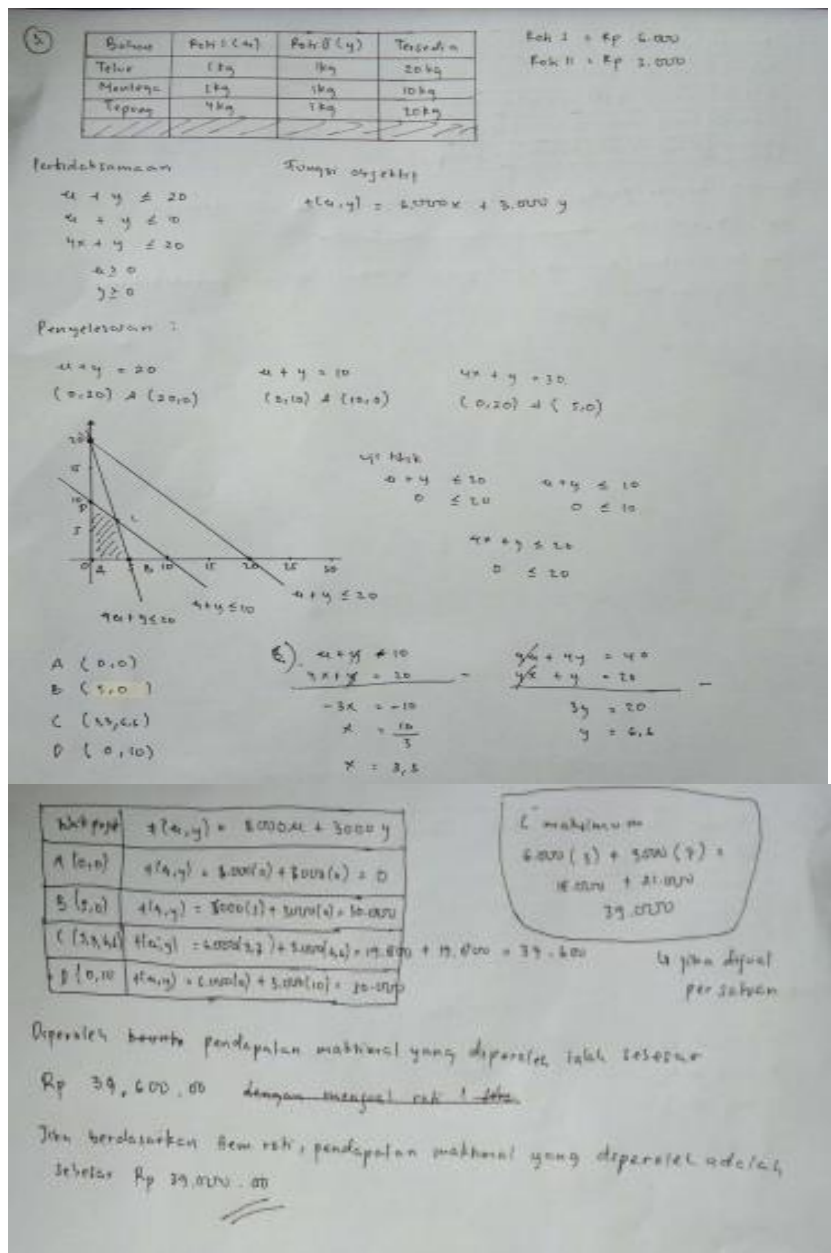 Bahan Roti I (x) Roti II (y) Tersedia
Telur 1 kg 1 kg 20 kg
Mentega 1 kg 1 kg 10 kg
Tepung 4 kg 1 kg 20 kg
Roti I = Rp 6.000
Roti II = Rp 3.000
Pertidaksamaan
x + y ≤ 20
x + y ≤ 10
4x + y ≤ 20
x ≥ 0
y ≥ 0
Fungsi objektif
f(x,y) = 6.000x + 3.000 y
Penyelesaian :
x + y = 20
(0,20) & (20,0)
x + y = 10
(0,10) & (10,0)
4x + y = 20
(0,20) & (5,0)
20
15
10
5
0 A 5 B 10 15 20 25 30
D
C
4x + y ≤ 20
x + y ≤ 10
x + y ≤ 20
uji titik
x + y ≤ 20
0 ≤ 20
x + y ≤ 10
0 ≤ 10
4x + y ≤ 20
0 ≤ 20
A (0,0)
B (5,0)
C (3,3,6,6)
D (0,10)
x + y = 10
4x + y = 20 -
-3x = -10
x = 10/3
x = 3,3
4x + 4y = 40
4x + y = 20 -
3y = 20
y = 6,6
Titik pojok f(x,y) = 6000x + 3000 y
A (0,0) f(x,y) = 6.000(0) + 3.000(0) = 0
B (5,0) f(x,y) = 6000(5) + 3.000(0) = 30.000
C (3,3,6,6) f(x,y) = 6.000(3,3) + 3.000(6,6) = 19.800 + 19.800 = 39.600
D (0,10 f(x,y) = 6.000(0) + 3.000(10) = 30.000
C maksimum
6.000 (3) + 3000 (7) =
18.000 + 21.000
39.000
↳ jika dijual
per satuan
Diperoleh pendapatan maksimal yang diperoleh ialah sebesar
Rp 39,600.00 dengan menjual roti 1
Jika berdasarkan item roti, pendapatan maksimal yang diperoleh adalah
sebesar Rp 39.000.00